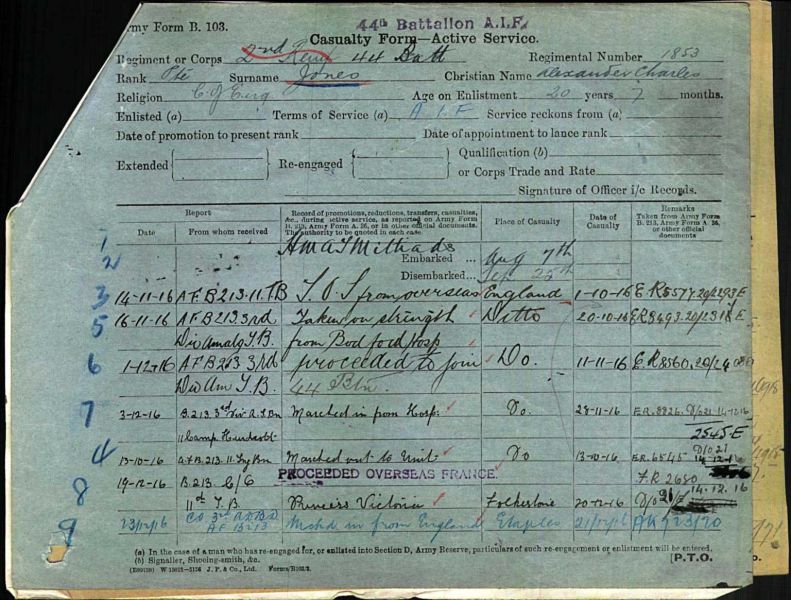 Army Form B. 103.
44th Battalion A.I.F.
Casualty Form—Active Service.
Regiment or Corps 2nd Reinf 44 Batt Regimental Number 1853
Rank Pte Surname Jones Christian Name Alexander Charles
Religion C of Eng Age on Enlistment 20 years 7 months.
Enlisted (a) Terms of Service (a) A I F Service reckons from (a)
Date of promotion to present rank Date of appointment to lance rank
Extended Re-engaged Qualification (b)
or Corps Trade and Rate
Signature of Officer i/c Records.
Report
Date From whom received
Record of promotions, reductions, transfers, casualties, &c., during active service, as reported on Army Form B. 213, Army Form A. 36, or in other official documents. The authority to be quoted in each case.
Place of Casualty
Date of Casualty
Remarks
Taken from Army Form B. 213, Army Form A. 36, or other official documents
1
2
H M A T Miltiades
Embarked Aug 7th
Disembarked Sep 25th
3 14-11-16 A.F.B 213. 11. T.B T.O.S from overseas England 1-10-16 E.R 5577
5 16-11-16 A.F.B 213. 3rd Taken on strength Ditto 20-10-16 E R 8493
Div Amalg T.B. from Bodford Hosp
6 1-12-16 A.F.B 213 3rd proceeded to join Do. 11-11-16 E.R 8560
Div Am T.B. 44 Btn.
7 3-12-16 B.213 3rd Div A.T Bn Marched in from Hosp. Do. 28-11-16 E.R. 8826 14-12-16
2545-E
4 13-10-16 A.F.B. 213. 11 Tg Bn Marched out to Unit Do 13-10-16 E.R. 6545 14-12-16
8 19-12-16 B 213 PROCEEDED OVERSEAS FRANCE. F.R 2680
11th T.B Princess Victoria Folkestone 20-12-16 14.12.16
9 23/12/16 CO 3rd A.D.B.D Mchd in from England Etaples 21/12/16
AF B213
(a) In the case of a man who has re-engaged for, or enlisted into Section D, Army Reserve, particulars of such re-engagement or enlistment will be entered.
(b) Signaller, Shoeing-smith, &c.
[P.T.O.
J. P. & Co., Ltd. Forms/B103/2.